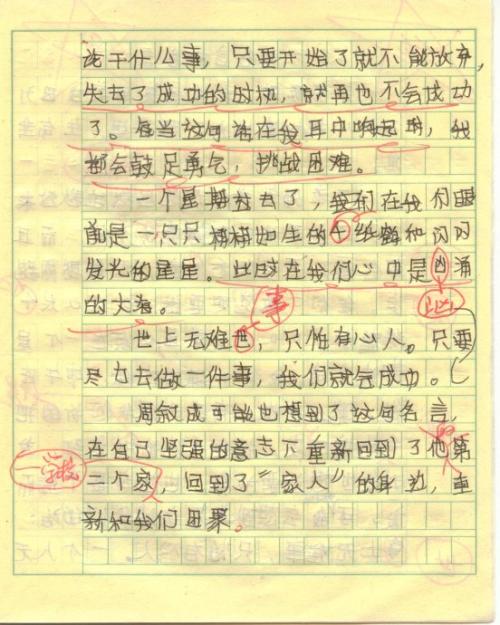 论干什么事，只要开始了就不能放弃，
失去了成功的时机，就再也不会成功
了。每当这句话在我耳中响起时，我
都会鼓足勇气，挑战困难。
一个星期过去了，我们在我们眼
前是一只只栩栩如生的千纸鹤和闪闪
发光的星星。此时在我们心中是凶涌
的大海。
汹
事
世上无难世，只怕有心人。只要
尽力去做一件事，我们就会成功。
周叙成可能也想到了这句名言，
在自己坚强的意志下重新回到了他第
二个家，回到了“家人”的身边，重
新和我们团聚。
学校